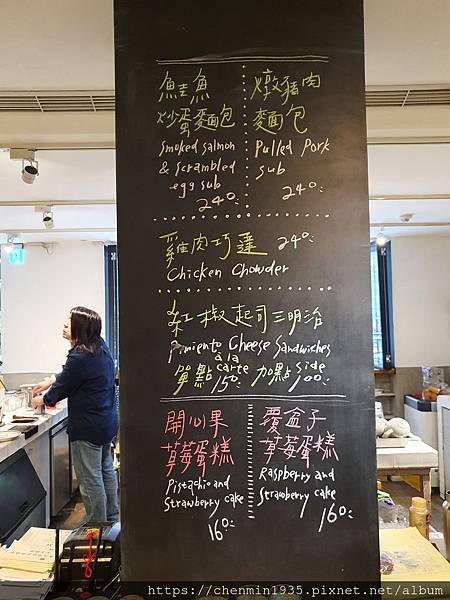 鮭魚
炒蛋麵包
Smoked salmon
& Scrambled
egg sub
240.-
燉豬肉
麵包
Pulled Pork
Sub
240.-
雞肉巧達 240.-
Chicken Chowder
紅椒起司三明治
Pimiento Cheese Sandwiches
單點 à la carte 150.- 加點 side 100.-
開心果
草莓蛋糕
Pistachio and
Strawberry cake
160.-
覆盆子
草莓蛋糕
Raspberry and
Strawberry cake
160.-
https://chenmin1935.pixnet.net/album